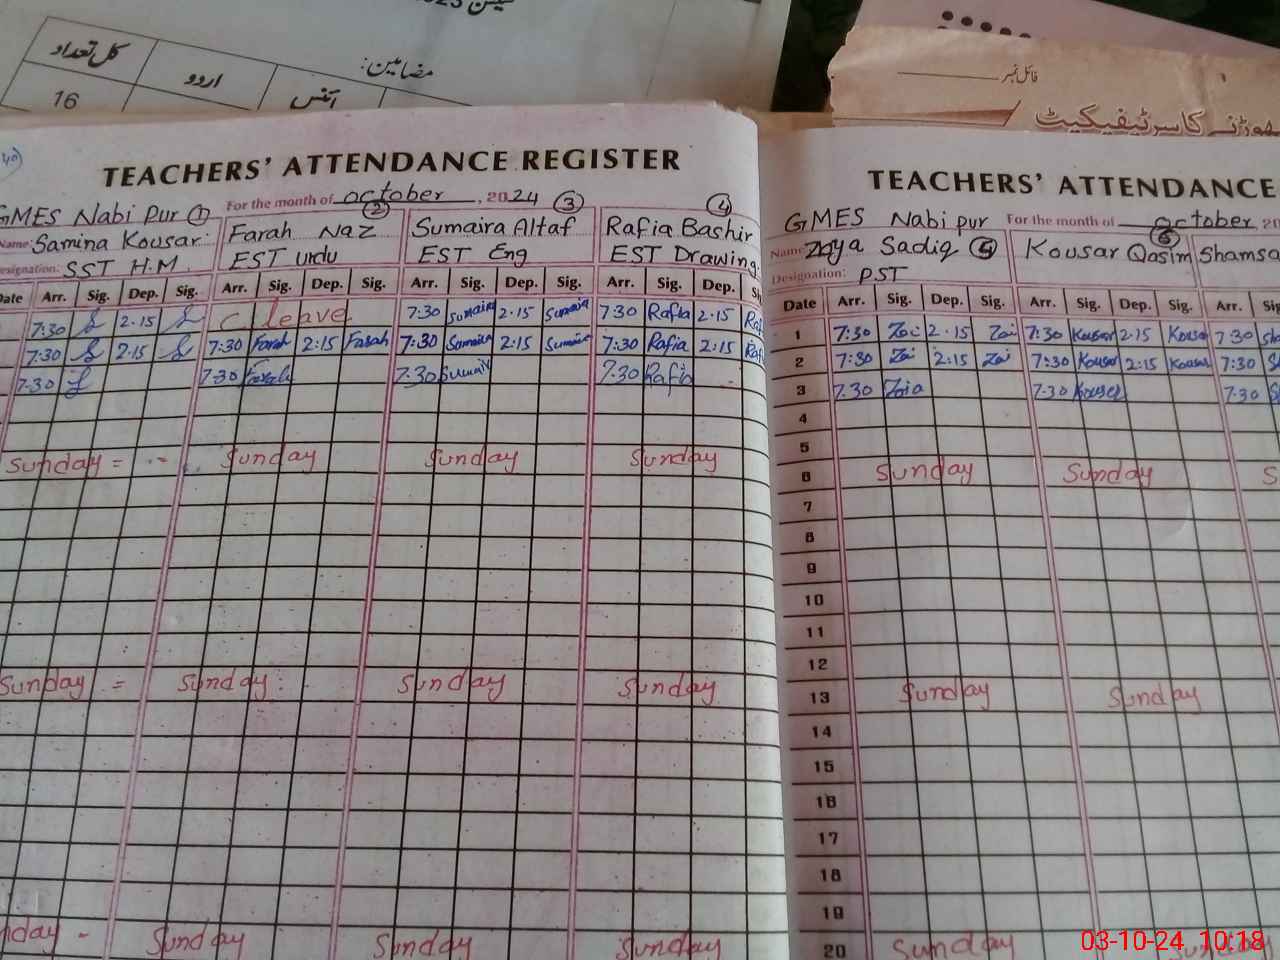 کل تعداد اردو آنس مضامین:
16
فائل نمبر
چھوڑنے کا سرٹیفیکیٹ
TEACHERS' ATTENDANCE REGISTER
For the month of October, 2024
GMES Nabi pur ① ② ③ ④
Name: Samina Kousar Farah Naz Sumaira Altaf Rafia Bashir
Designation: SST H.M EST urdu EST Eng EST Drawing
Date Arr. Sig. Dep. Sig. Arr. Sig. Dep. Sig. Arr. Sig. Dep. Sig. Arr. Sig. Dep.
7:30 2·15 C leave 7:30 Sumaira 2·15 Sumaira 7:30 Rafia 2·15
7:30 2:15 7:30 Farah 2:15 Farah 7:30 Sumaira 2:15 Sumaira 7:30 Rafia 2:15
7.30 7:30 7:30 7.30 Rafia
Sunday = Sunday Sunday Sunday
Sunday = Sunday Sunday Sunday
Sunday Sunday Sunday
TEACHERS' ATTENDANCE
GMES Nabi pur For the month of October, 20
Name: Zoya Sadiq ⑤ Kousar Qasim ⑥ Shamsa
Designation: PST
Date Arr. Sig. Dep. Sig. Arr. Sig. Dep. Sig. Arr.
1 7:30 Zoi 2·15 Zoi 7:30 Kousar 2:15 7:30
2 7:30 Zoi 2:15 Zoi 7:30 Kousar 2:15 Kousar 7:30
3 7.30 Zoia 7.30 Kousar 7.30
4
5
6 Sunday Sunday
7
8
9
10
11
12
13 Sunday Sunday
14
15
16
17
18
19
20 Sunday Sunday
03-10-24 10:18